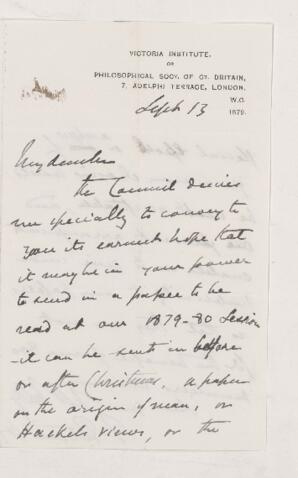 VICTORIA INSTITUTE,
OR
PHILOSOPHICAL SOCY. OF GT. BRITAIN,
7, ADELPHI TERRACE, LONDON,
W.C.
Sept 13 1879.
My dear
the Council desires
me specially to convey to
you its earnest hope that
it may be in your power
to send in a paper to be
read at our 1879-80 Session
- it can be sent in before
or after Christmas. a paper
on the origin of man, or
Hackels views, or the